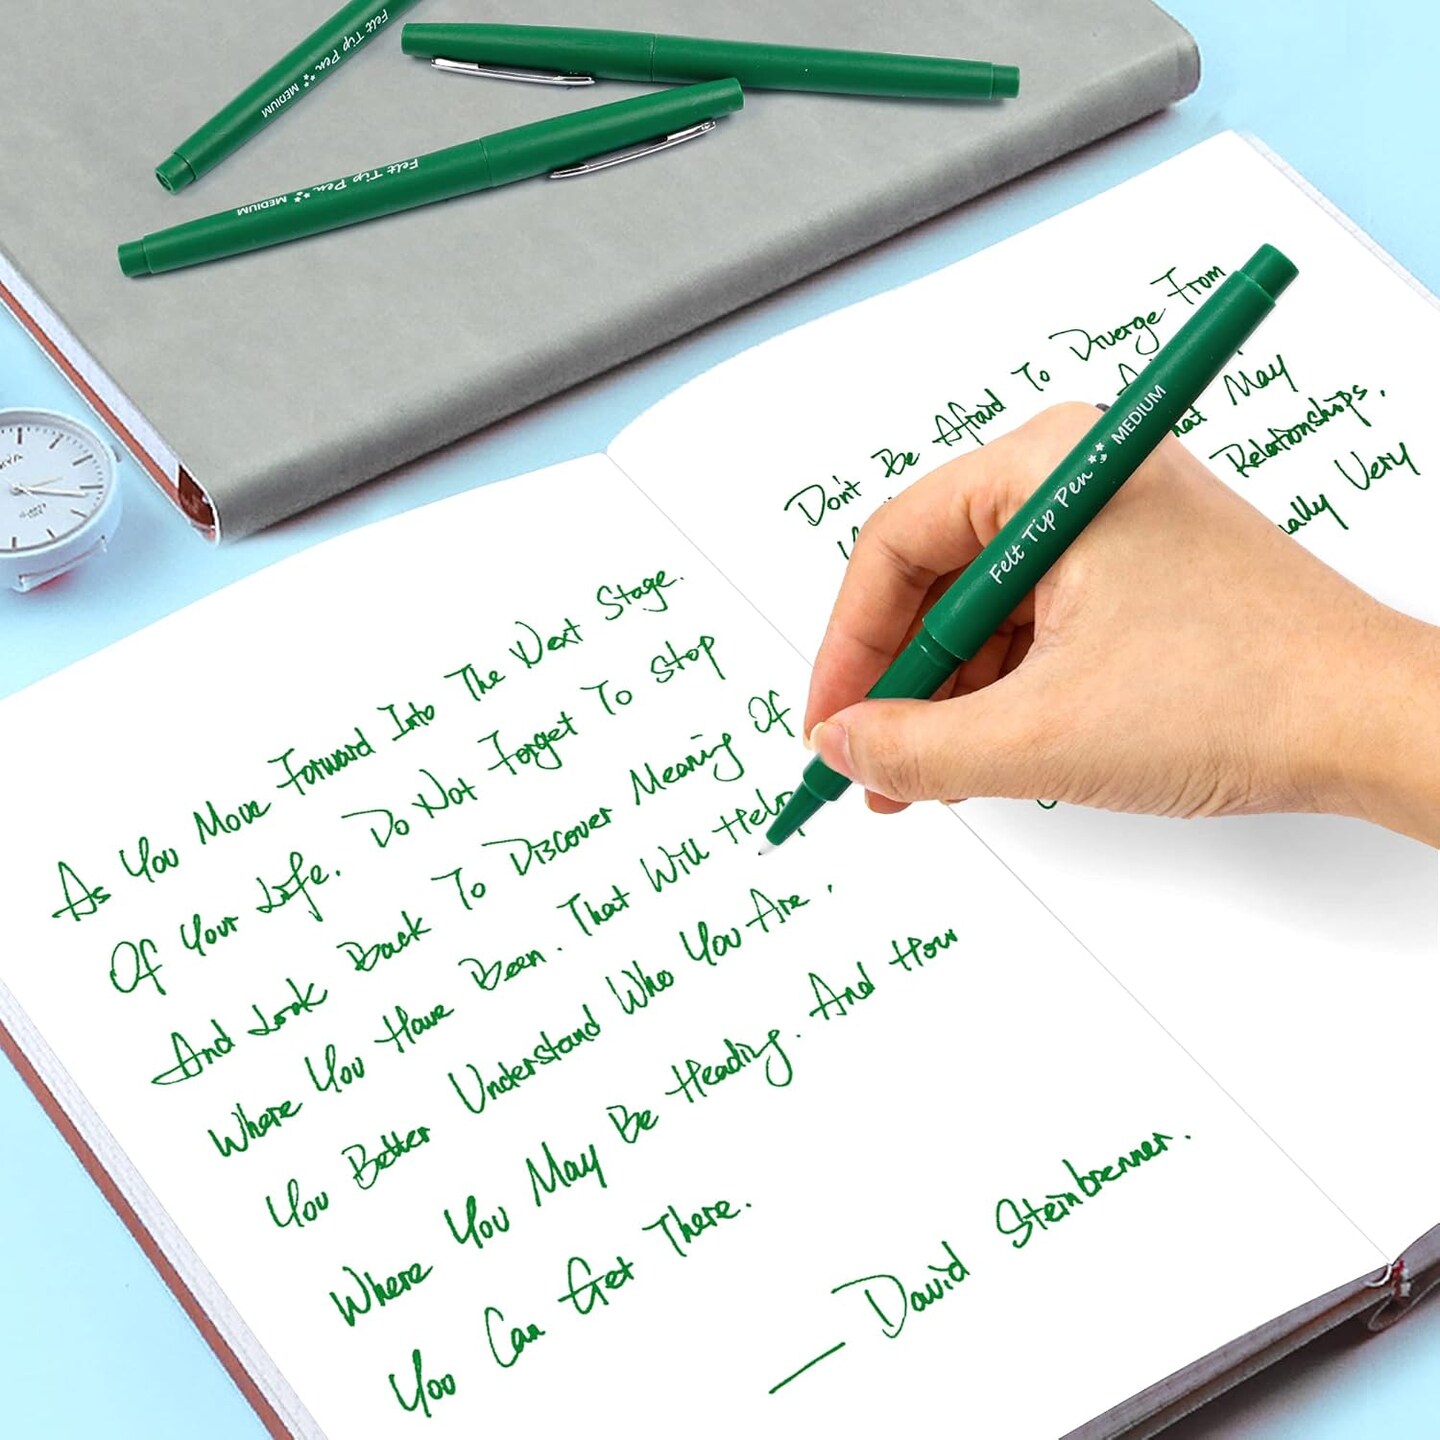 Felt Tip Pen MEDIUM
Felt Tip Pen MEDIUM
As You Move Forward Into The Next Stage.
Of Your Life. Do Not Forget To Stop
And Look Back To Discover Meaning Of
Where You Have Been. That Will Help
You Better Understand Who You Are,
Where You May Be Heading. And How
You Can Get There.
— David Steinbrenner.
Don't Be Afraid To Diverge From
May
Relationships,
Very
Felt Tip Pen MEDIUM